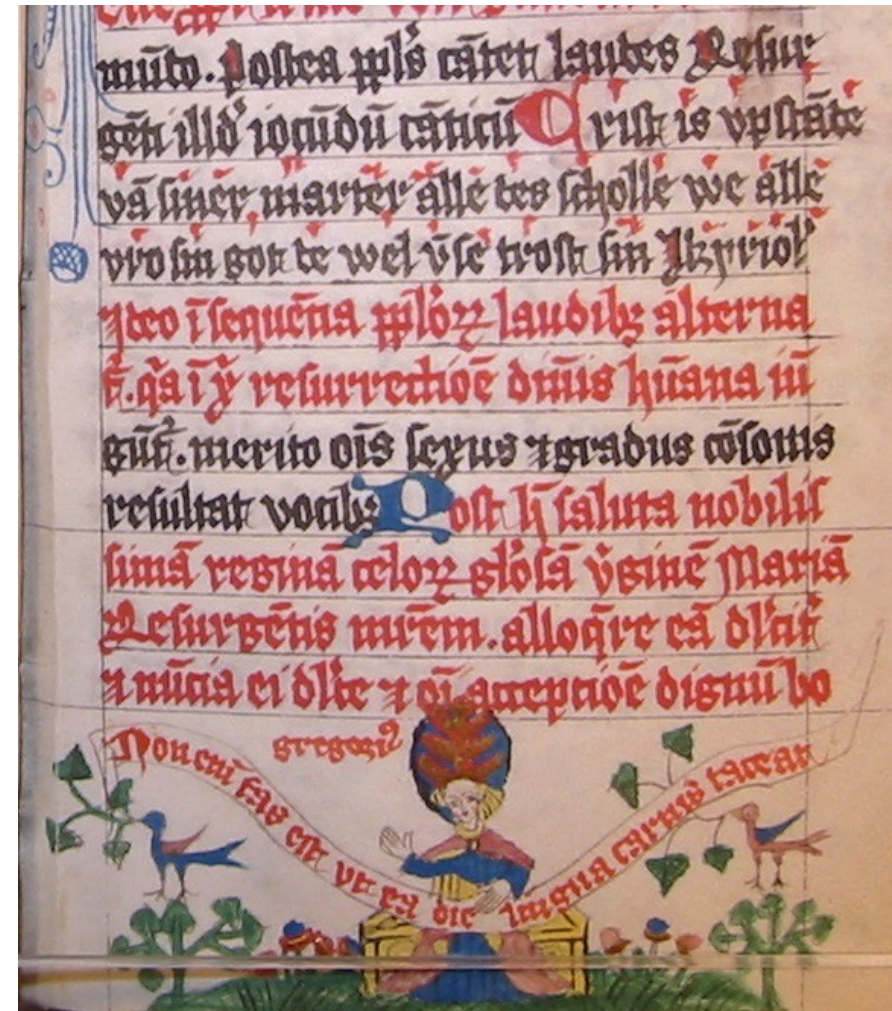 mūdo. Postea ppls cātet laudes Resur
gētī illd' iocūdū cāticū Crist is vpstādē
vā sinēr martēr allē des schollē we allē
vro sin got de wel vse trost sin kyriol'
Ideo ī sequētia pplo⁊ laudibꝫ alterna
t'. qa ī xp̄i resurrectioē diuīs hūana iū
gūt'. merito oīs sexus ⁊ gradus cōsonis
resultat vocibꝫ Post h̄ saluta nobilis
simā reginā celoꝝ gl'osā v'ginē Mariā
Resurgētis mr̄em. alloq̄re eā dl'cit'
⁊ nūcia ei dl'ce ⁊ oī acceptioē dignū bo
gregoriꝰ
Non enī fas est vt ea die lingua carnis taceat